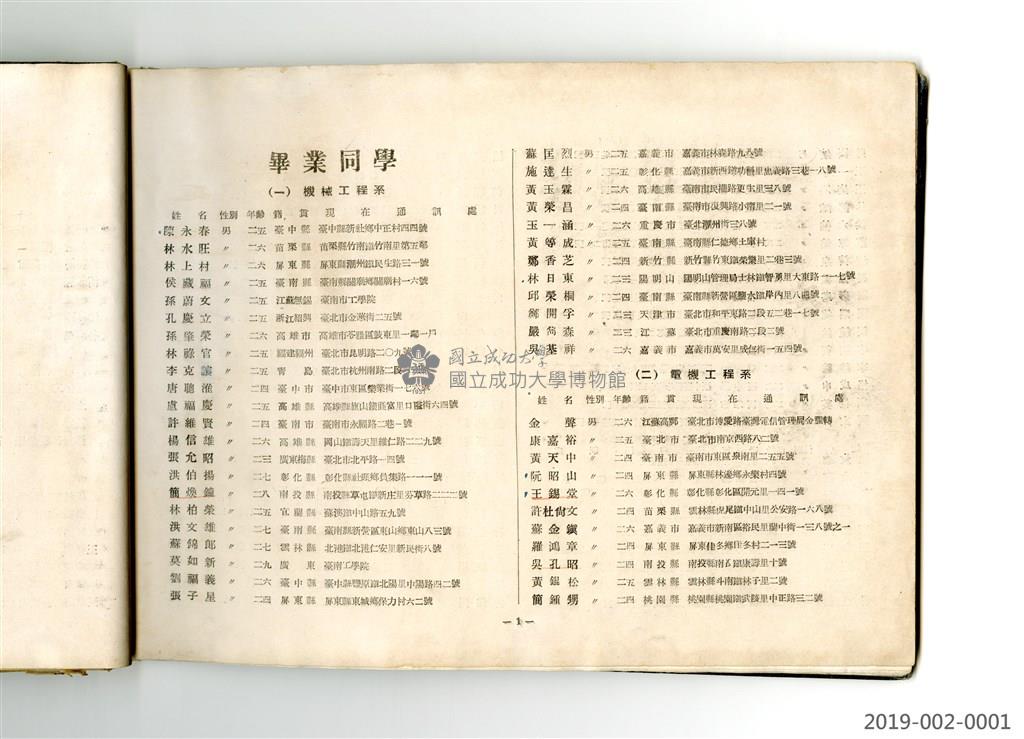 畢業同學
(一) 機械工程系
姓 名 性別 年齡 籍 貫 現 在 通 訊 處
陳永春 男 二五 臺中縣 臺中縣新社鄉中正村四四號
林水旺 〃 二六 苗栗縣 苗栗縣竹南鎮竹南里第五鄰
林上村 〃 二六 屏東縣 屏東縣潮州鎮民生路三一號
侯藏福 〃 二五 臺南縣 臺南縣關廟鄉關廟村一六號
孫蔚文 〃 二五 江蘇無錫 臺南市工學院
孔慶立 〃 二五 浙江紹興 臺北市金華街二五號
孫肇榮 〃 二六 高雄市 高雄市苓雅區鼓東里一鄰一戶
林祿官 〃 二五 福建福州 臺北市昆明路二〇九號
李克讓 〃 二五 青島 臺北市杭州南路二段
唐聰漁 〃 二四 臺中市 臺中市東區樂業街一七六號
盧福慶 〃 二五 高雄縣 高雄縣旗山鎮 富里口 街六四號
許維賢 〃 二四 臺南市 臺南市永福路二巷 號
楊信雄 〃 二六 高雄縣 岡山鎮壽天里維仁路二二九號
張允昭 〃 二三 廣東梅縣 臺北市北平路一四號
洪伯揚 〃 二七 彰化縣 彰化縣社頭鄉員集路一一一號
簡煥鐘 〃 二八 南投縣 南投縣草屯鎮新庄里芬草路二二二號
林柏榮 〃 二五 宜蘭縣 蘇澳鎮中山路五九號
洪文雄 〃 二七 臺南縣 臺南縣新營區東山鄉東山八三號
蘇錦郎 〃 二七 雲林縣 北港鎮北港仁安里新民街八號
莫如新 〃 二九 廣東 臺南工學院
劉福義 〃 二六 臺中縣 臺中縣豐原鎮北陽里中陽路四二號
張子星 〃 二四 屏東縣 屏東縣車城鄉保力村六二號
蘇匡烈 男 二五 嘉義市 嘉義市林森路九八號
施達生 〃 二五 彰化縣 嘉義市新西鎮功 里忠義路三巷一八號
黃玉霖 〃 二六 高雄縣 臺南市民權路更生里三八號
黃榮昌 〃 二四 臺南縣 臺南市復興路小南里二一號
王一涵 〃 二六 重慶市 臺北潮州街三八號
黃等成 〃 二五 臺南縣 臺南縣仁德鄉土庫村
鄭香芝 〃 二四 新竹縣 新竹縣竹東鎮榮樂里二巷三號
林日東 〃 二三 陽明山 陽明山管理局士林鎮智勇里大東路一一七號
邱榮桐 〃 二四 臺南縣 臺南縣新營區鹽水鎮岸內里八四號
鄭開孚 〃 二三 天津市 臺北市和平東路二段五二巷一七號
嚴筍森 〃 二三 江蘇 臺北市重慶南路二段二號
吳基祥 〃 二六 嘉義市 嘉義市萬安里成仁街一五四號
國立成功大學
國立成功大學博物館
(二) 電機工程系
姓 名 性別 年齡 籍 貫 現 在 通 訊 處
金聲 男 二六 江蘇高郵 臺北市博愛路臺灣電信管理局金蘊轉
康嘉裕 〃 二五 臺北市 臺北市南京西路八二號
黃天中 〃 二四 臺南市 臺南市東區泉南里二五五號
阮昭山 〃 二四 屏東縣 屏東縣林邊鄉永樂村四號
王錫堂 〃 二六 彰化縣 彰化縣彰化區開元里一四一號
許杜尙文 〃 二四 苗栗縣 雲林縣虎尾鎮中山里公安路一六八號
蘇金鎭 〃 二六 嘉義市 嘉義市新南區裕民里蘭中街一三八號之一
羅鴻章 〃 二四 屏東縣 屏東佳冬鄉佳冬村二一三號
吳孔昭 〃 二四 南投縣 南投縣南 鎮康壽里十號
黃錫松 〃 二五 雲林縣 雲林縣斗南鎮林子里二號
簡鍾甥 〃 二四 桃園縣 桃園縣桃園鎮武陵里中正路三二號
— 1 —
2019-002-0001